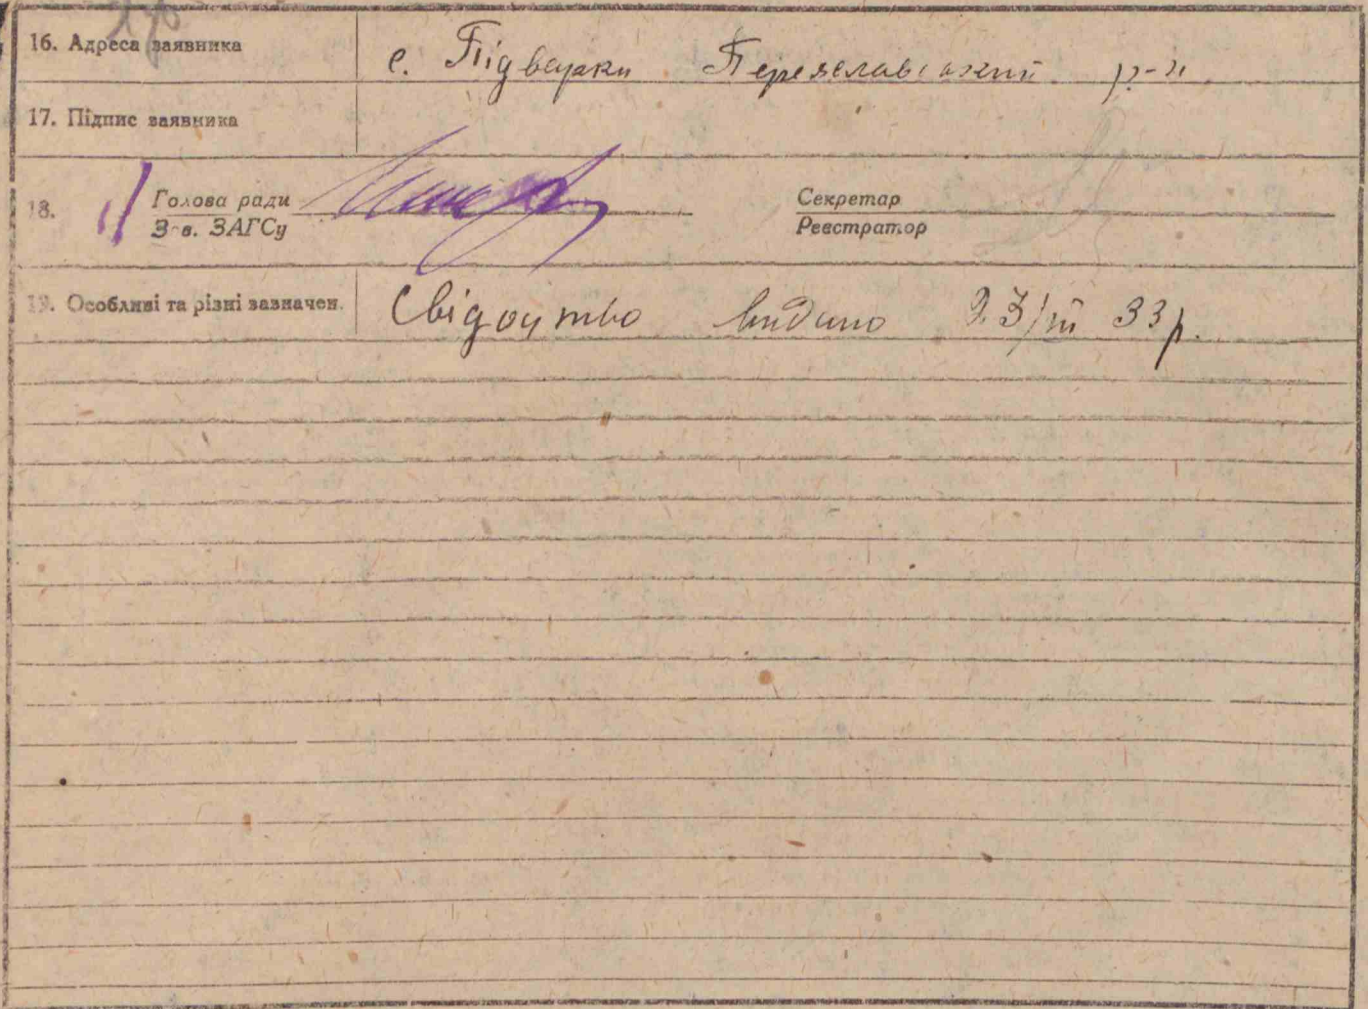 16. Адреса заявника с. Підварки Переяславський р-н.
17. Підпис заявника
18. Голова ради Секретар
З-в. ЗАГСу Реєстратор
19. Особливі та різні зазначен. Свідоцтво видано 23/III 33 р.